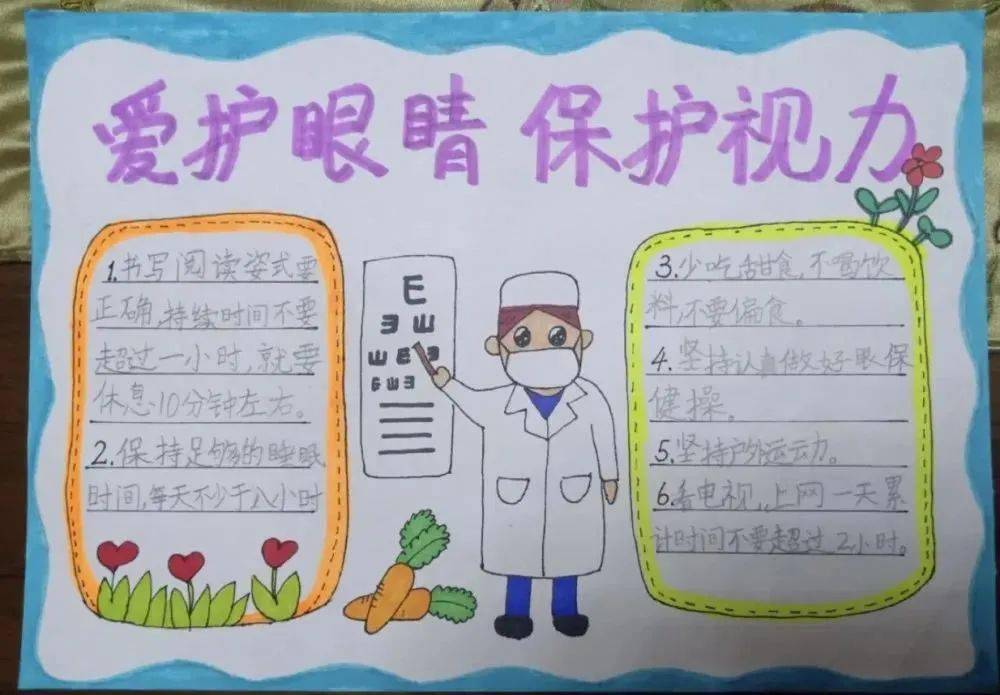 爱护眼睛 保护视力
1.书写阅读姿式要
正确,持续时间不要
超过一小时,就要
休息10分钟左右。
2.保持足够的睡眠
时间,每天不少于八小时
E
ƎШ
ШEƎ
GШƎ
3.少吃甜食,不喝饮
料,不要偏食。
4.坚持认真做好眼保
健操。
5.坚持户外运动。
6.看电视,上网一天累
计时间不要超过2小时。